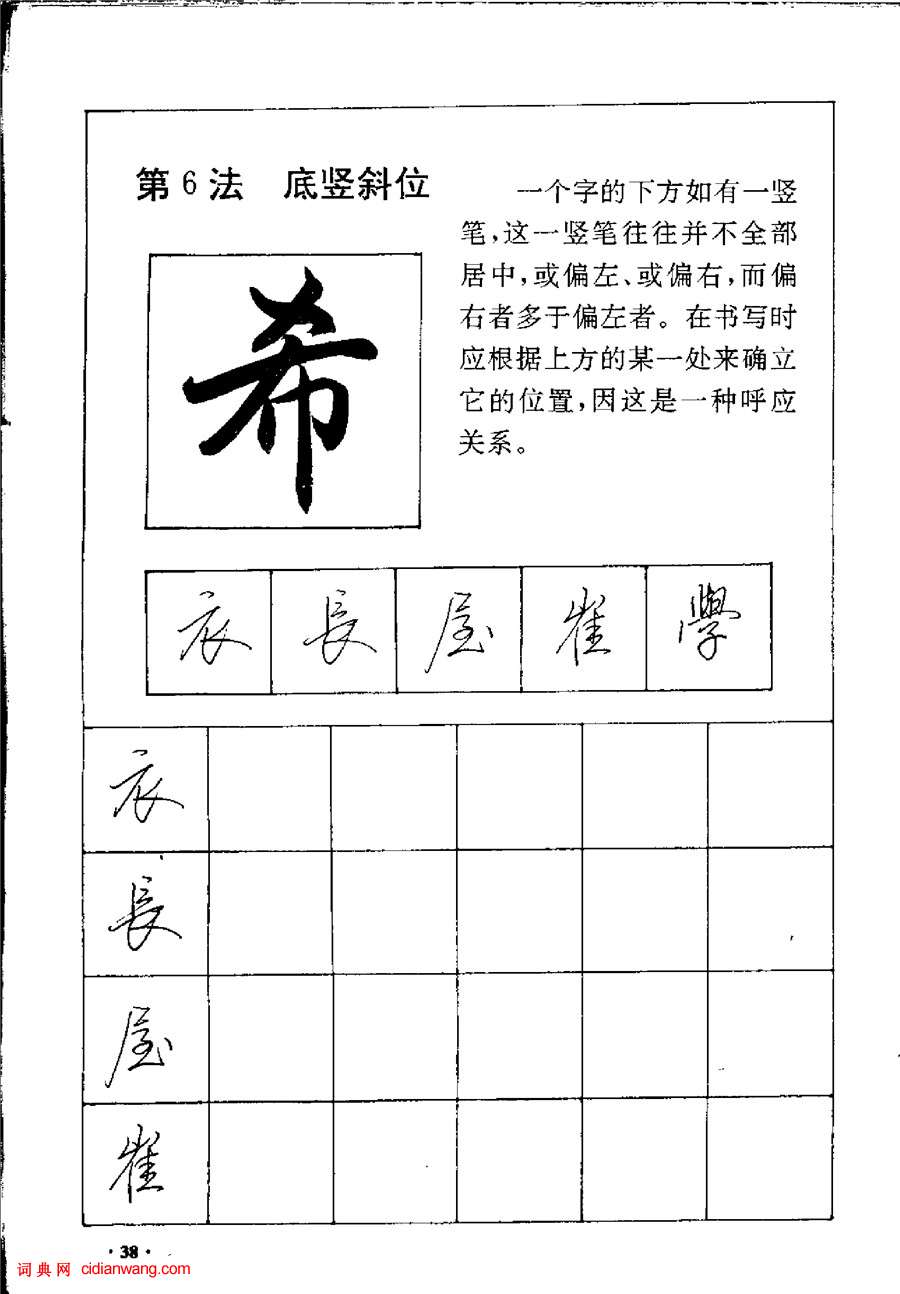 第6法 底竖斜位
一个字的下方如有一竖
笔，这一竖笔往往并不全部
居中，或偏左、或偏右，而偏
右者多于偏左者。在书写时
应根据上方的某一处来确立
它的位置，因这是一种呼应
关系。
希
衣 長 屋 崔 學
衣
長
屋
崔
·38·
词典网 cidianwang.com